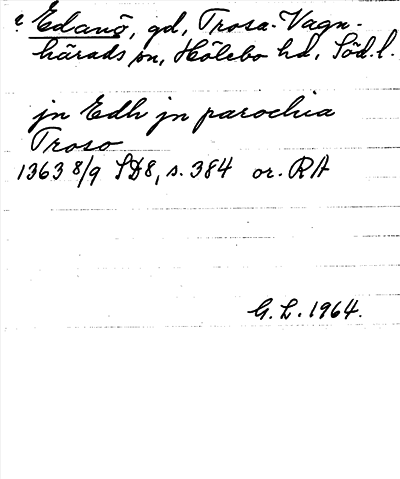 Edanö, gd, Trosa-Vagn-
härads sn, Hölebo hd, Söd.l.
jn Edh jn parochia
Troso
1363 8/9 SD8, s. 384 or. RA
G. L. 1964.